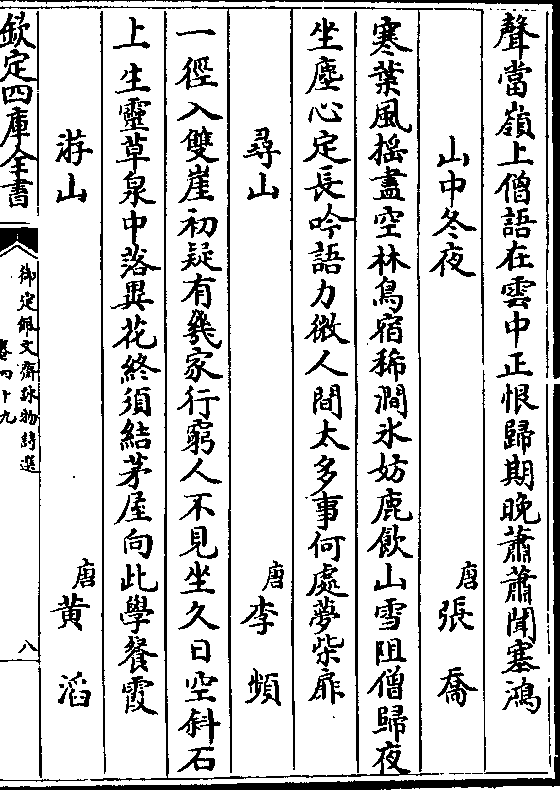 聲當嶺上僧語在雲中正恨歸期晚蕭蕭聞塞鴻
山中冬夜 唐張喬
寒葉風揺盡空林鳥宿稀澗氷妨鹿飲山雪阻僧歸夜
坐塵心定長吟語力微人間太多事何處夢柴扉
尋山 唐李頻
一徑入雙崖初疑有幾家行窮人不見坐久日空斜石
上生靈草泉中落異花終須結茅屋向此學餐霞
游山 唐黄滔
欽定四庫全書
御定佩文齋詠物詩選
卷四十九
八